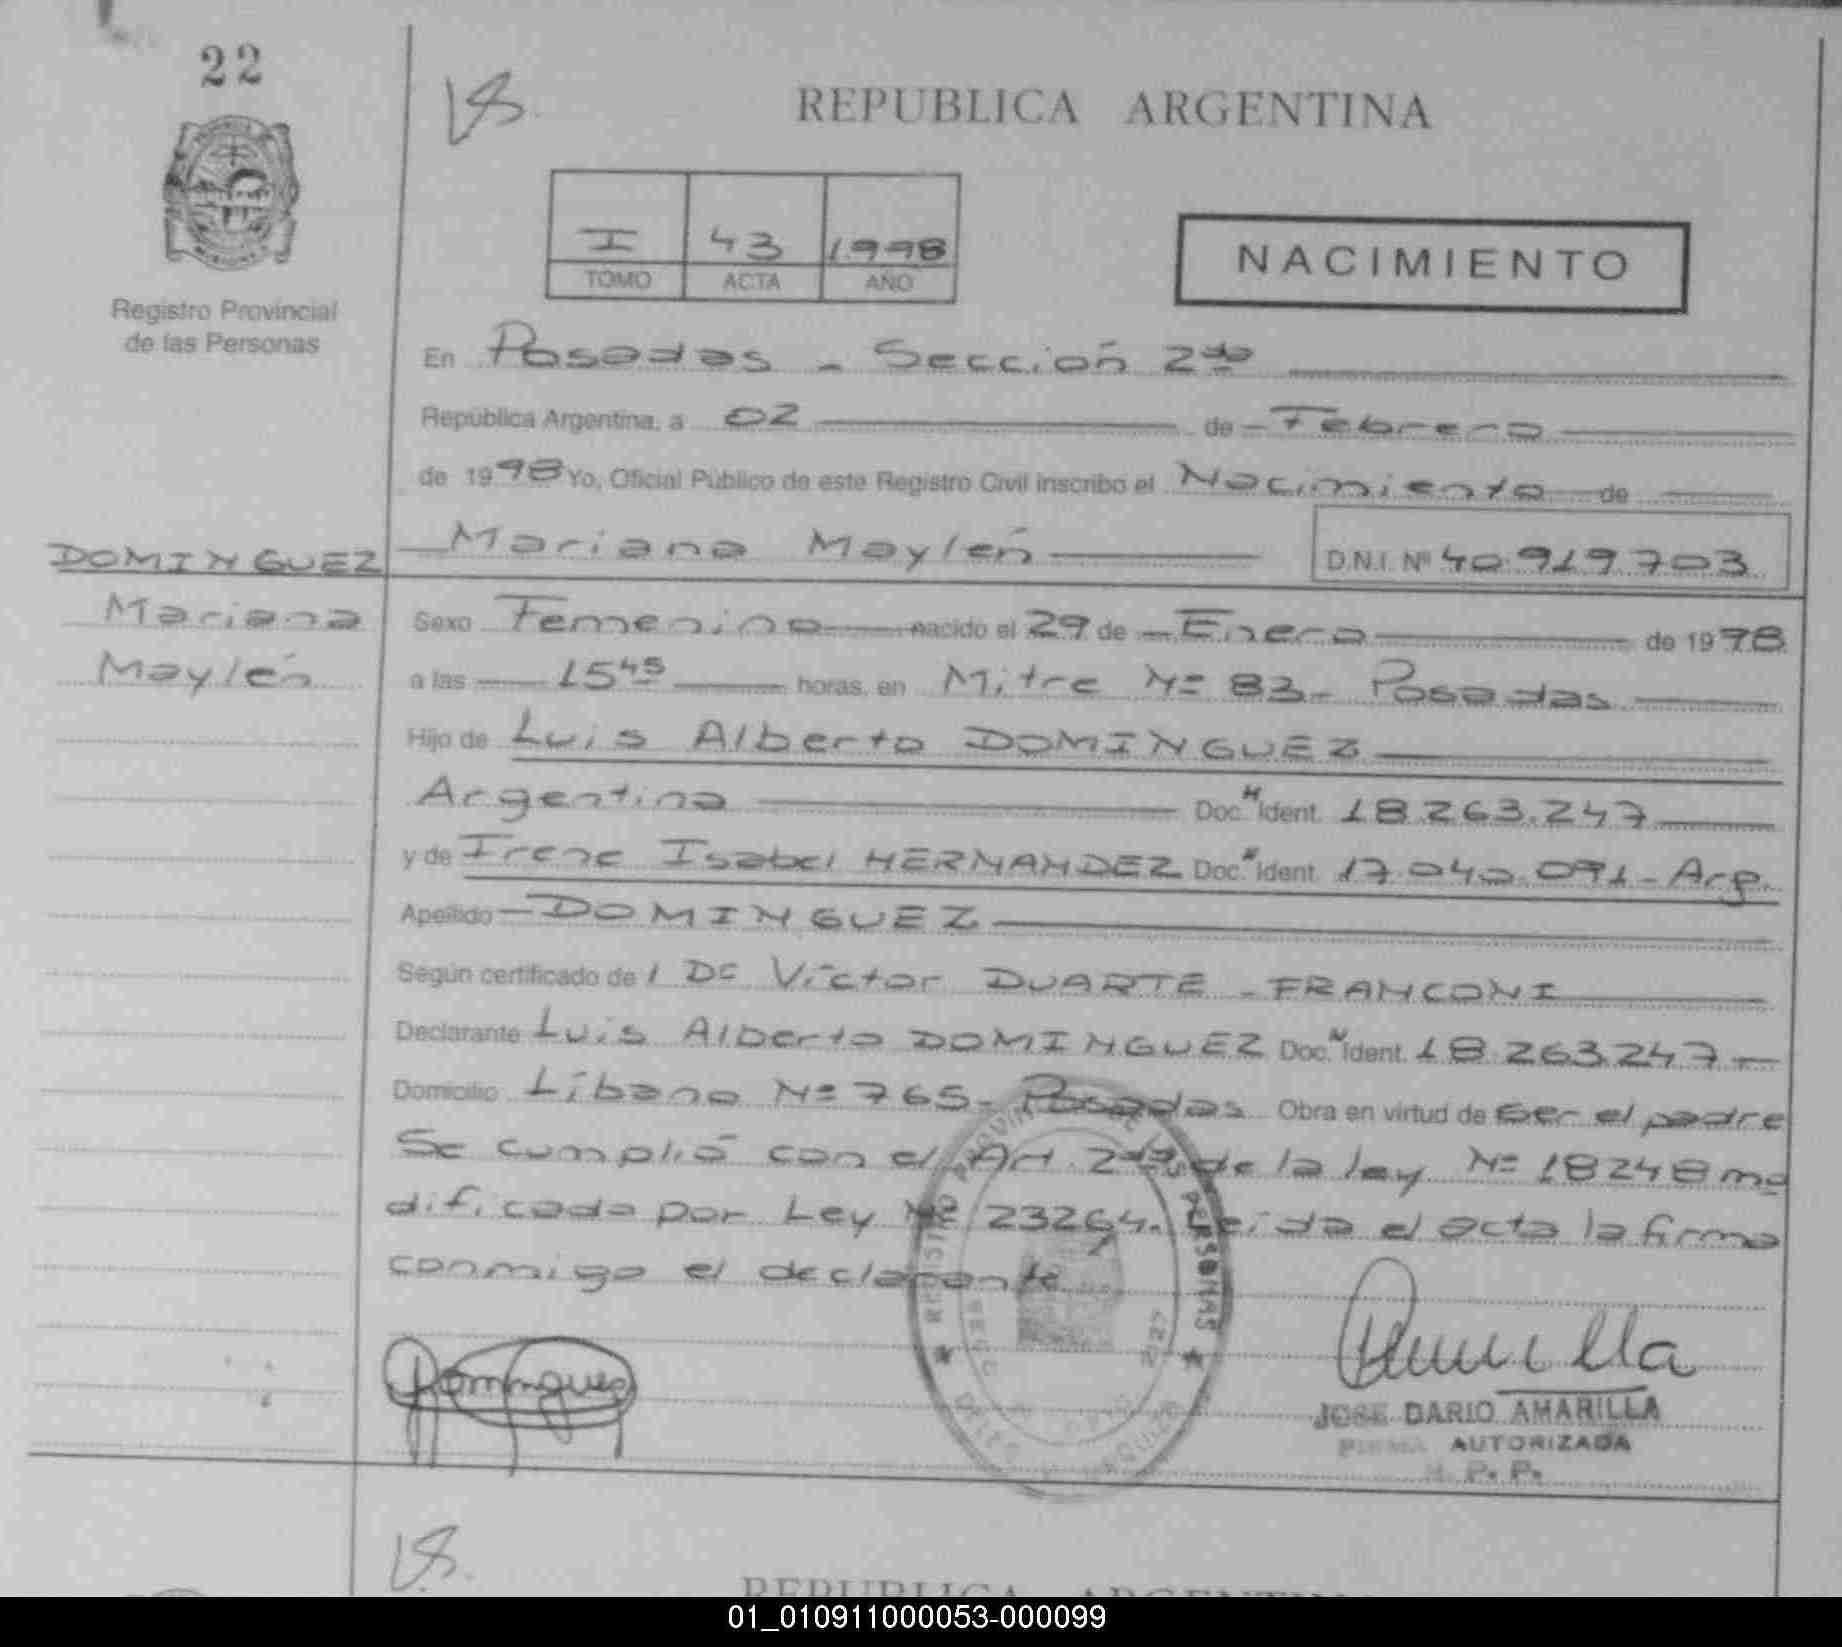 22
REPUBLICA ARGENTINA
I 43 1998
TOMO ACTA AÑO
NACIMIENTO
Registro Provincial
de las Personas
En Posadas - Sección 2da
República Argentina, a 02 de Febrero
de 1998 Yo, Oficial Público de este Registro Civil inscribo el Nacimiento de
Mariana Maylén D.N.I. Nº 40.919.703
DOMINGUEZ
Mariana
Maylén
Sexo Femenino nacido el 29 de Enero de 1998
a las 15 45 horas, en Mitre Nº 83- Posadas
Hijo de Luis Alberto DOMINGUEZ
Argentina Doc. N Ident. 18.263.247
y de Irene Isabel HERNANDEZ Doc. N Ident. 17.040.091- Arg.
Apellido DOMINGUEZ
Según certificado de l Dr Víctor DUARTE - FRANCONI
Declarante Luis Alberto DOMINGUEZ Doc. N Ident. 18.263.247-
Domicilio Líbano Nº 765- Posadas Obra en virtud de ser el padre
Se cumplió con el Art. 2do de la ley Nº 18248 mo
dificada por Ley Nº 23264. Leída el acta la firma
conmigo el declarante
Dominguez
REGISTRO PROVINCIAL DE LAS PERSONAS
JOSE DARIO AMARILLA
FIRMA AUTORIZADA
R. P. P.
REPUBLICA ARGENTINA
01_010911000053-000099